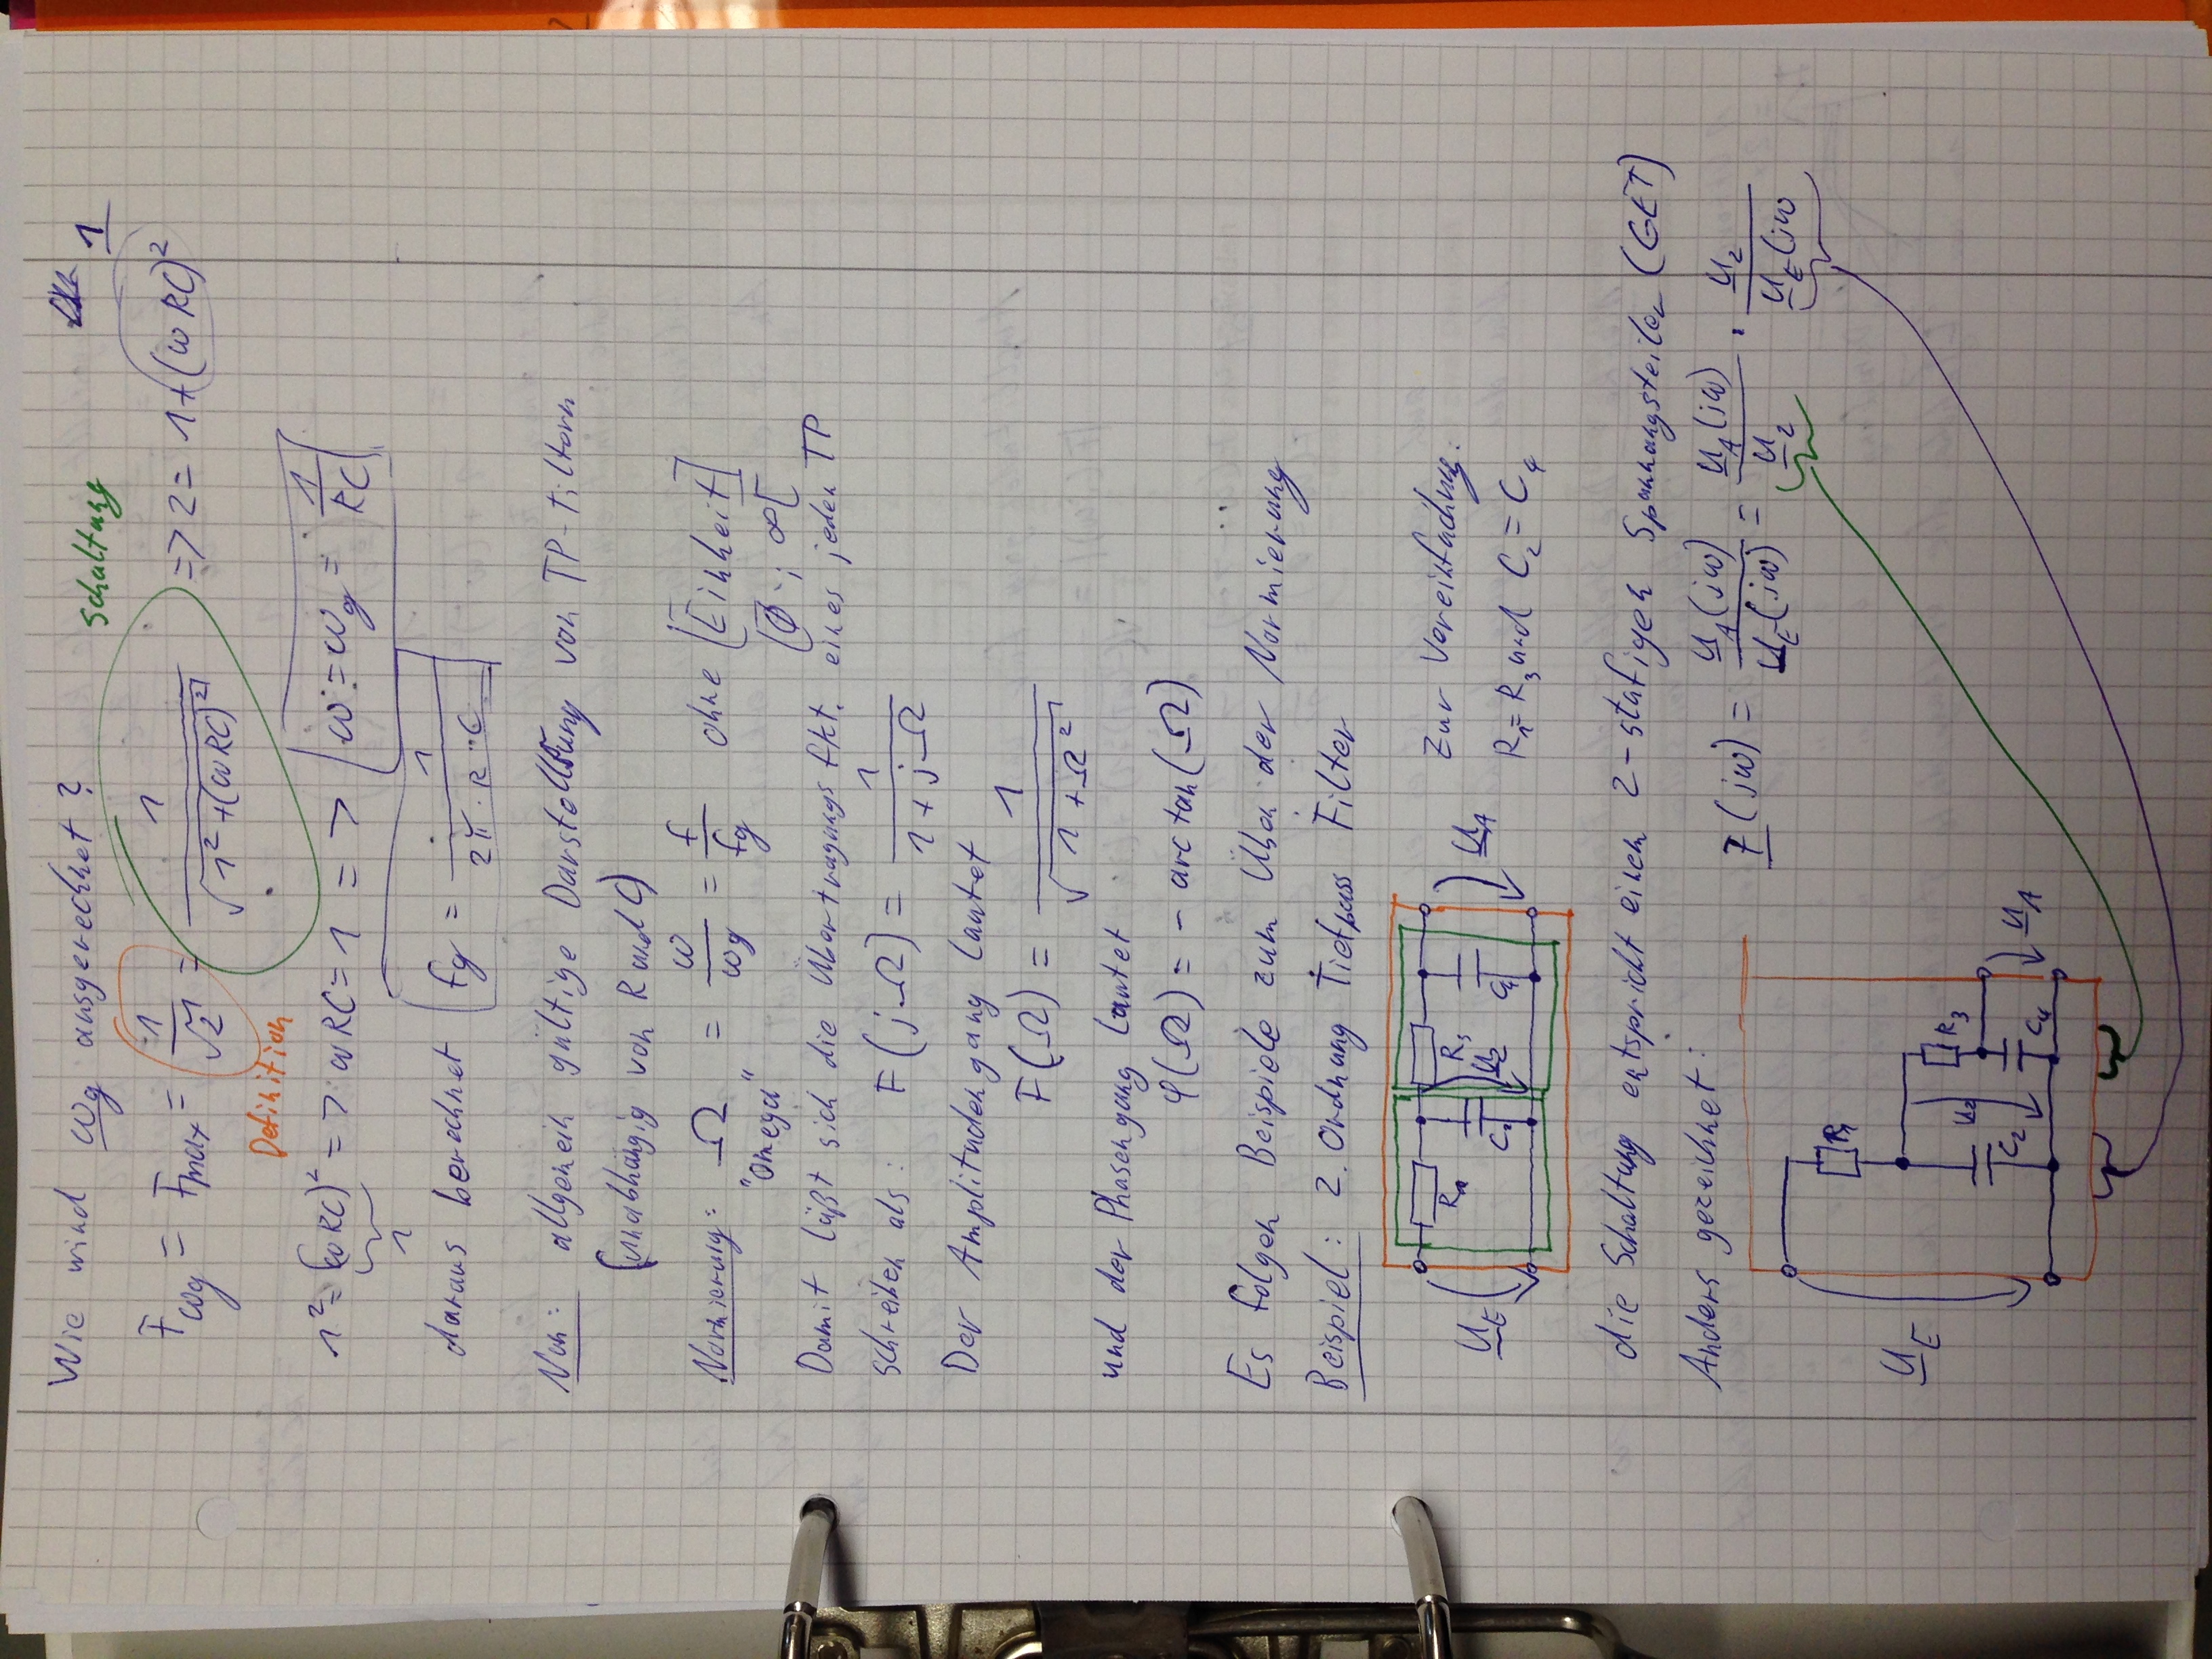 Wie wird ωg ausgerechnet?
1
Schaltung
Fωg = Fmax = 1/√2 = 1/√(1² + (ωRC)²) => 2 = 1 + (ωRC)²
Definition
1² = (ωRC)² => ωRC = 1 => ω = ωg = 1/RC
1
daraus berechnet fg = 1/(2π · R · C)
Nun: allgemein gültige Darstellung von TP-Filtern
(unabhängig von R und C)
Normierung: Ω = ω/ωg = f/fg ohne [Einheit]
"Omega" [0 ; ∞[
Damit läßt sich die Übertragungsfkt. eines jeden TP
schreiben als: F(jΩ) = 1/(1 + jΩ)
Der Amplitudengang lautet
F(Ω) = 1/√(1 + Ω²)
und der Phasengang lautet
φ(Ω) = - arctan(Ω)
Es folgen Beispiele zum Üben der Normierung
Beispiel: 2. Ordnung Tiefpass Filter
R1 R3
U_E C2 U2 C4 U_A
Zur Vereinfachung:
R1 = R3 und C2 = C4
die Schaltung entspricht einem 2-stufigen Spannungsteiler (GET)
Anders gezeichnet:
F(jω) = U_A(jω)/U_E(jω) = U_A(jω)/U_2 · U_2/U_E(jω
R1
U_E
U2 R3
C2 C4 U_A